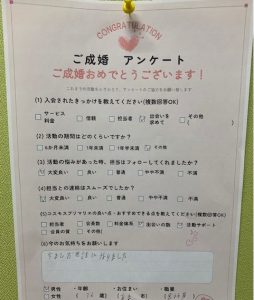 CONGRATULATION
ご成婚 アンケート
ご成婚おめでとうございます！
(1) 入会されたきっかけを教えてください(複数回答OK)
サービス 信頼 担当者 出会いを その他
料金 求めて ( )
(2) 活動の期間はどのくらいですか？
6か月未満 1年未満 1年半未満 その他
(3) 活動の悩みがあった時、担当はフォローしてくれましたか？
大変良い 良い 普通 やや不満 不満
(4) 担当との連絡はスムーズでしたか？
大変良い 良い 普通 やや不満 不満
(5) コスモスプリマリアの良い点・おすすめできる点を教えてください(複数回答OK)
担当者 会員数 料金体系 出会いの数 活動サポート
会員の質 その他( )
(6) 今のお気持ちをお願いします
男性 年齢 お住まい 職業
女性